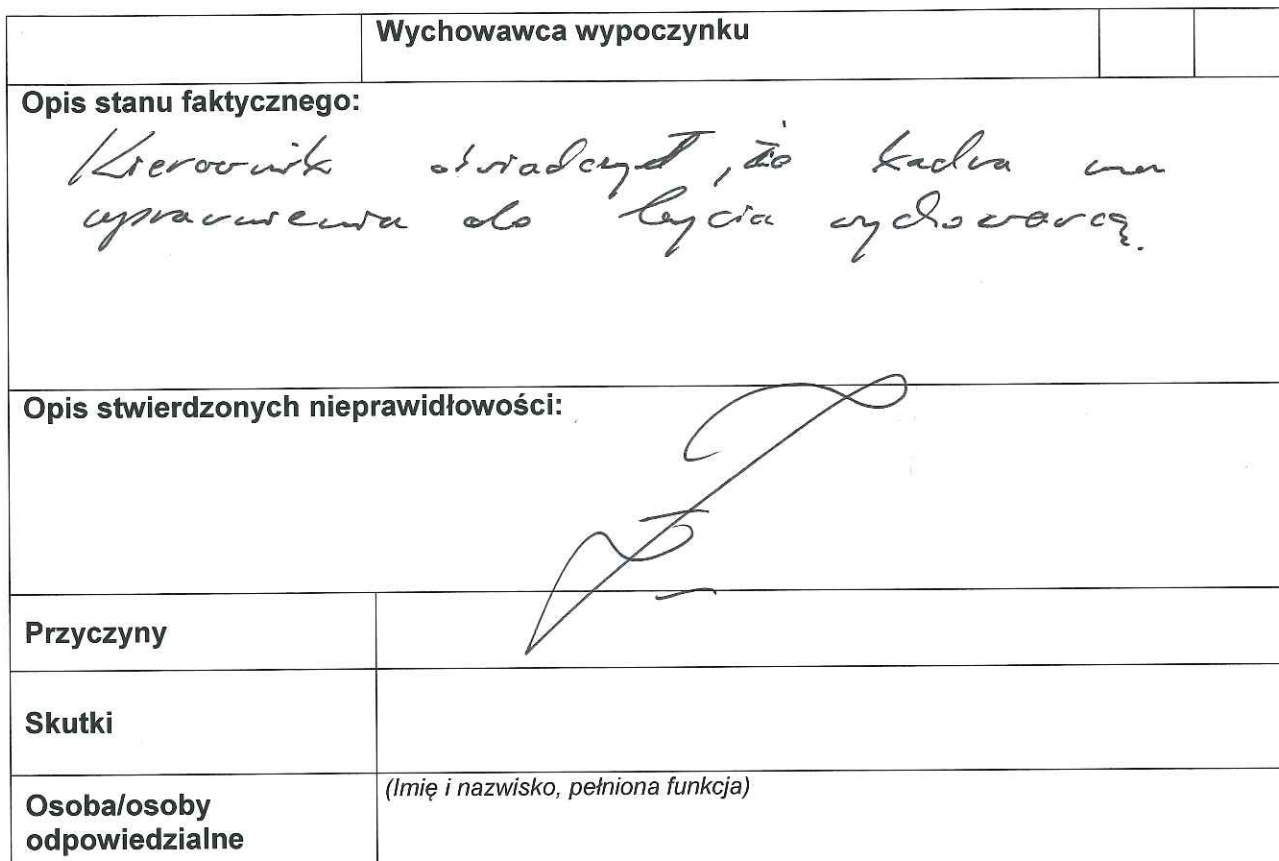 Wychowawca wypoczynku
Opis stanu faktycznego:
Kierownik oświadczył, że kadra ma
uprawnienia do bycia wychowawcą.
Opis stwierdzonych nieprawidłowości:
Przyczyny
Skutki
Osoba/osoby
odpowiedzialne
(Imię i nazwisko, pełniona funkcja)